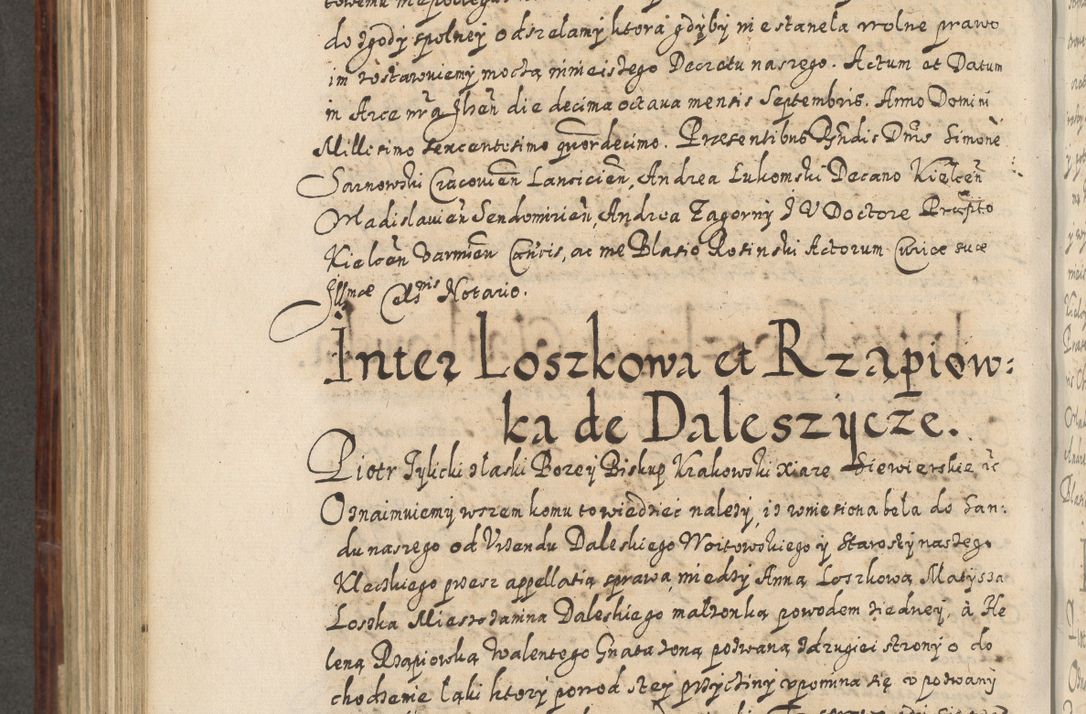 do zgody spolney odszelamy ktora gdyby nie stanela wolne prawo
im zostawuiemy mocżą ninieiszego Decretu naszego. Actum et Datum
in Arce nrã Ilzeñ die decima octaua mensis Septembris. Anno Domini
Millesimo sexcentesimo quordecimo. Præsentibus Rñdis Dñis Simone
Sarnowski Cracouieñ Lancicieñ, Andrea Lukomski Decano Kielceñ
Wladislauieñ Sendomirieñ, Andrea Zagorny I V Doctore Præpito
Kielceñ Varmieñ Cañcis, ac me Blasio Rosinski Actorum Curiæ suæ
Illmæ Celsnis Notario.
Inter Loszkowa et Rząpiow:
ka de Daleszycze.
Piotr Tylicki złaski Bozey Biskup Krakowski xiąze Siewierskie ꝛc
Oznaimuiemy wszem komu to wiedzieć nalezy, iz wniesiona bela do San:
du naszego od Vrzendu Daleskiego Woitowskiego y Starosty naszego
Kleckiego przez appellatią sprawa miedzy Anną Loszkową Matysza
Loszka Mieszczanina Daleskiego małzonką powodem z iedney, à He
leną Rząpiowską Walentego Gnata zoną pozwaną z drugiei strony o do
chodzenie łąki ktory powod z tey przyczyny vpomina się v pozwany